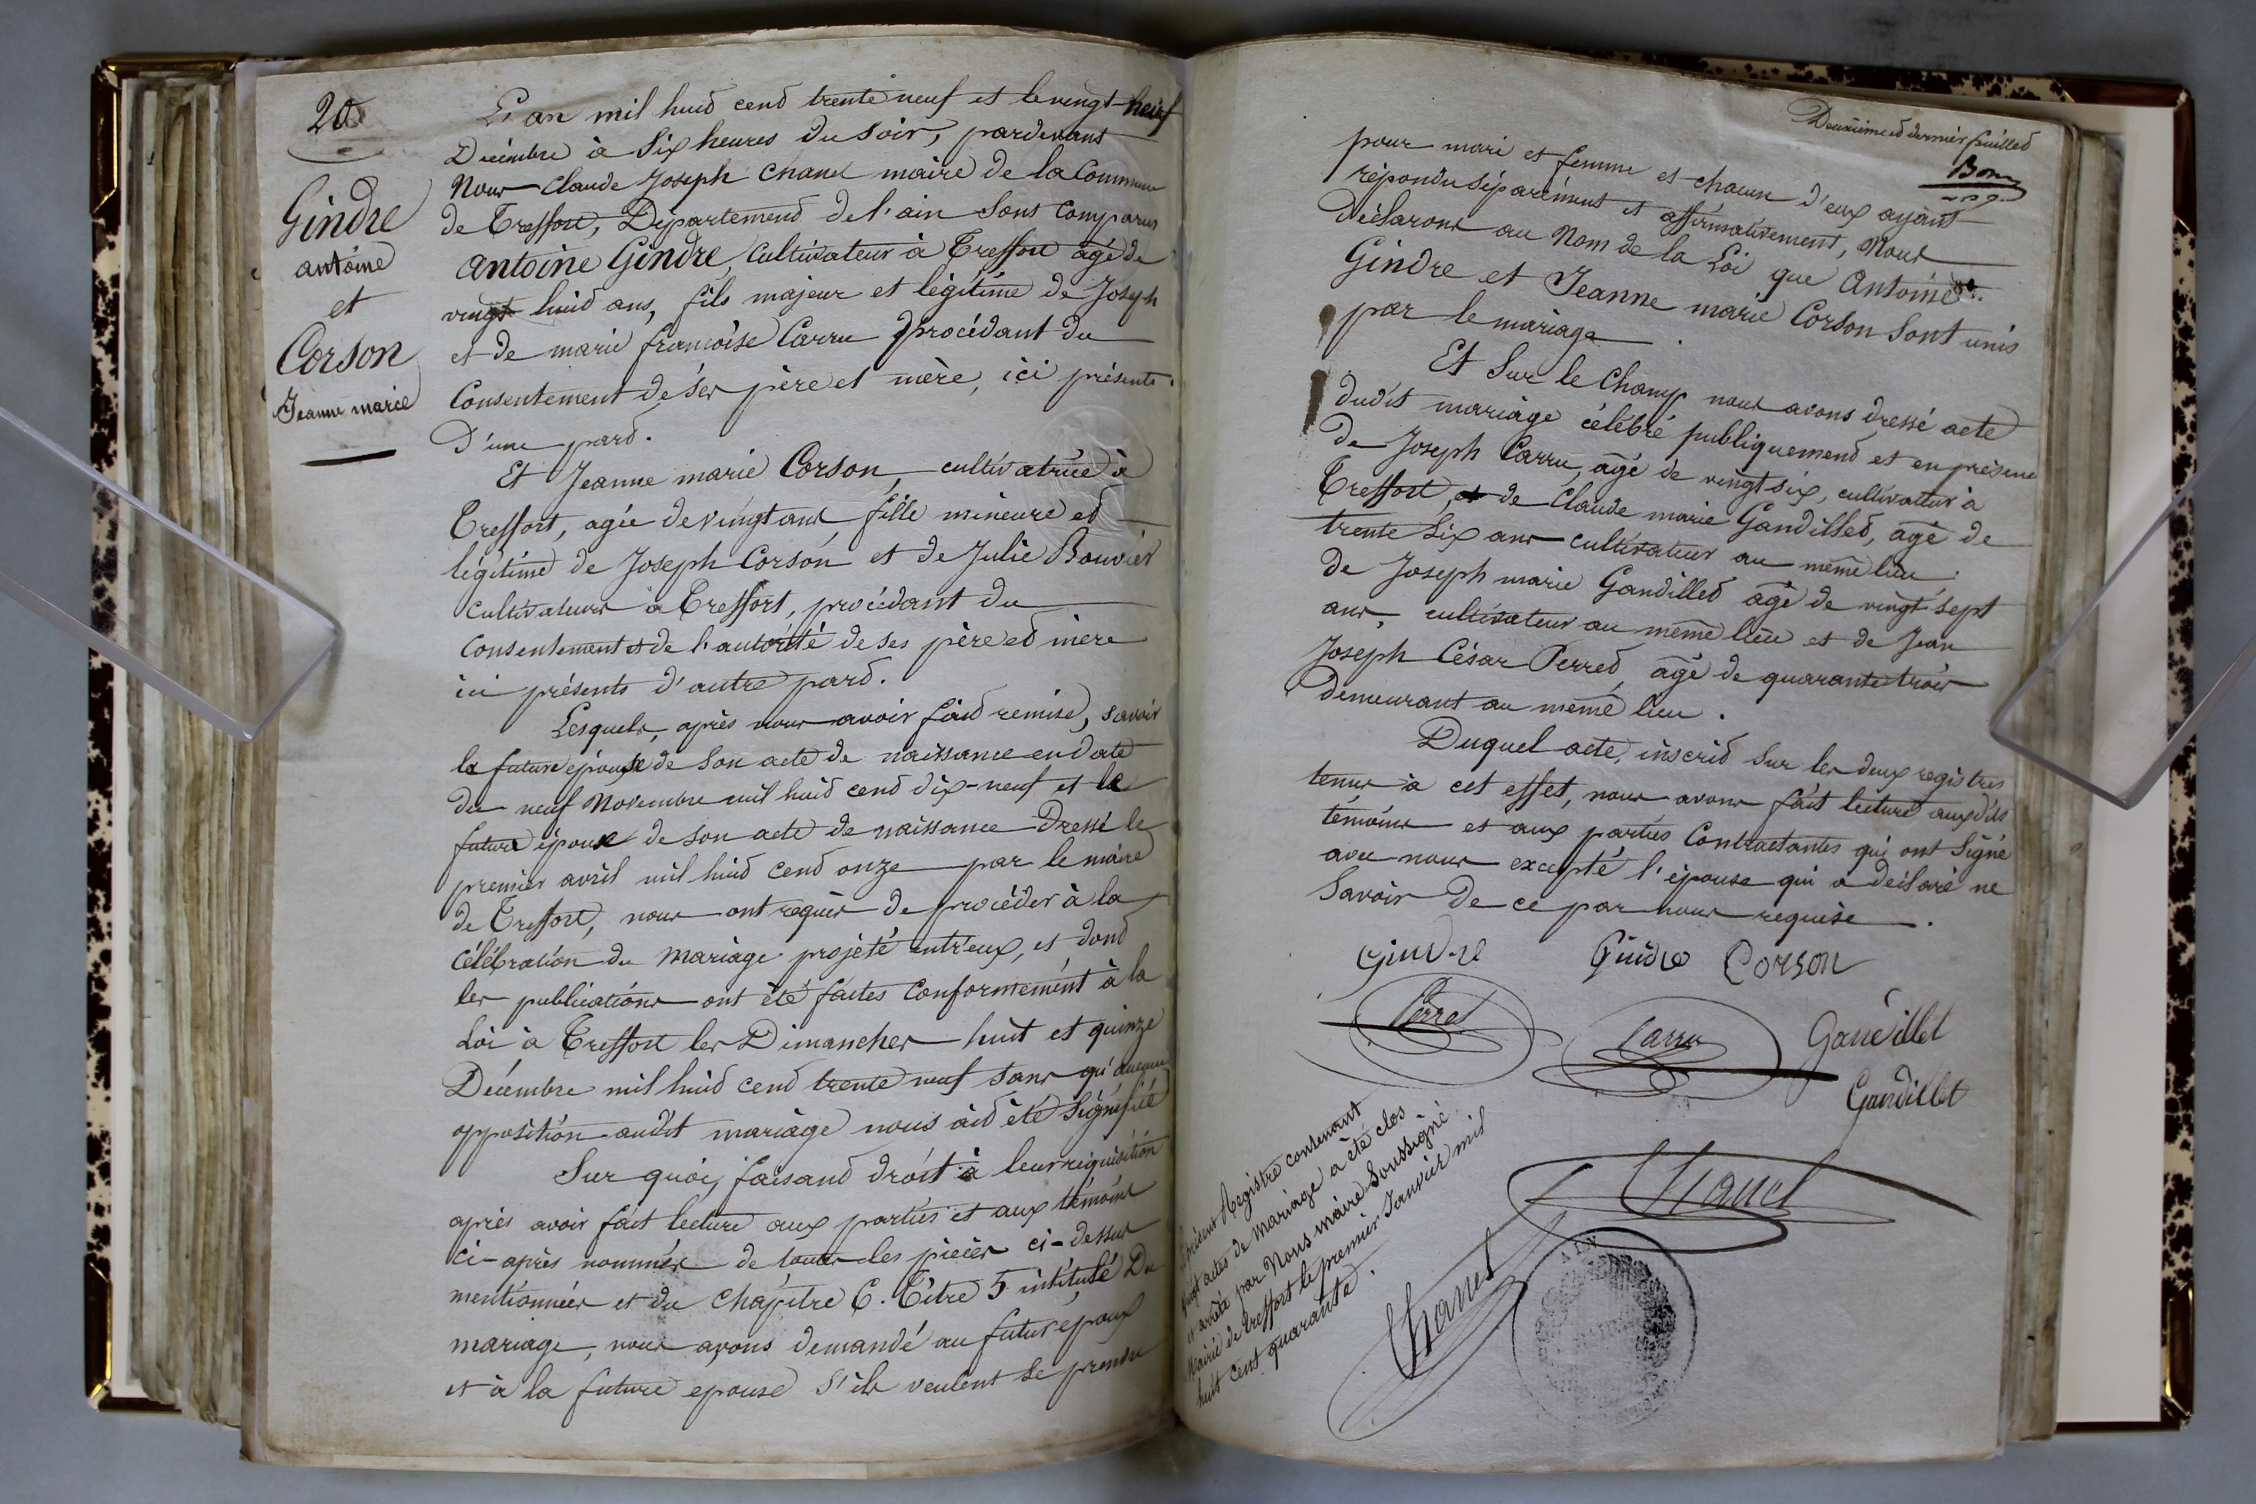 20
Gindre
antoine
et
Corson
Jeanne marie
L'an mil huit cent trente neuf et le vingt-neuf
Décembre à Six heures du soir, pardevant
Nous Claude Joseph Chanel maire de la Commune
de Treffort, Département de l'ain Sont Comparus
antoine Gindre, Cultivateur à Treffort agé de
vingt huit ans, fils majeur et légitime de Joseph
et de marie françoise Carru procédant du
Consentement de ses père et mère, ici présents
D'une part.
Et Jeanne marie Corson, cultivatrice à
Treffort, agée de vingt ans fille mineure et
légitime de Joseph Corson et de Julie Bouvier
Cultivateurs à Treffort, procédant du
Consentement et de l'autorité de ses père et mère
ici présents d'autre part.
Lesquels, après nous avoir fait remise, savoir
la future épouse de son acte de naissance en date
du neuf Novembre mil huit cent dix-neuf et le
futur époux de son acte de naissance Dressé le
premier avril mil huit cent onze par le maire
de Treffort, nous ont requis de procéder à la
Célébration du Mariage projeté entr'eux, et dont
les publications ont été faites Conformément à la
Loi à Treffort les Dimanches huit et quinze
Décembre mil huit cent trente neuf sans qu'aucune
opposition audit mariage nous ait été Signifiée
Sur quoi, faisant droit à leur réquisition
après avoir fait lecture aux parties et aux témoins
ci-après nommés de toutes les pièces ci-dessus
mentionnées et du Chapitre 6. Titre 5 intitulé Du
mariage, nous avons demandé au futur époux
et à la future epouse s'ils veulent se prendre
Deuxième et dernier feuillet
pour mari et femme et chacun d'eux ayant
répondu séparément et affirmativement, Nous
Déclarons au Nom de la Loi que Antoine
Gindre et Jeanne marie Corson Sont unis
par le mariage.
Et Sur le Champ nous avons dressé acte
dudit mariage célébré publiquement et en présence
de Joseph Carru, agé de vingt six, cultivateur à
Treffort, de Claude marie Gandillet, agé de
trente Six ans cultivateur au même lieu
de Joseph marie Gandillet agé de vingt sept
ans, cultivateur au même lieu et de Jean
Joseph César Perret, agé de quarante trois
demeurant au même lieu.
Duquel acte, inscrit Sur les deux registres
tenus à cet effet, nous avons fait lecture auxdits
témoins et aux parties Contractantes qui ont Signé
avec nous excepté l'épouse qui a déclaré ne
Savoir De ce par nous requise.
Gindre Gindre Corson
Perret Carru Gandillet
Gandillet
Chanel
présent Registre contenant
vingt actes de Mariage a été clos
et arrêté par Nous maire Soussigné
Mairie de treffort le premier Janvier mil
huit cent quarante.
Chanel